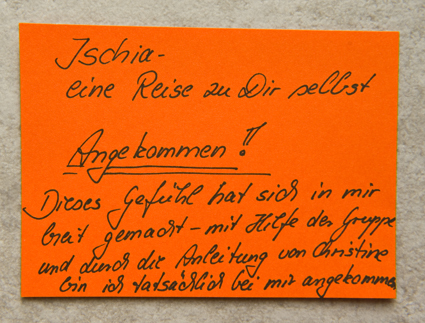 Ischia -
eine Reise zu Dir selbst
Angekommen!!
Dieses Gefühl hat sich in mir
breit gemacht - mit Hilfe der Gruppe
und durch die Anleitung von Christine
bin ich tatsächlich bei mir angekommen